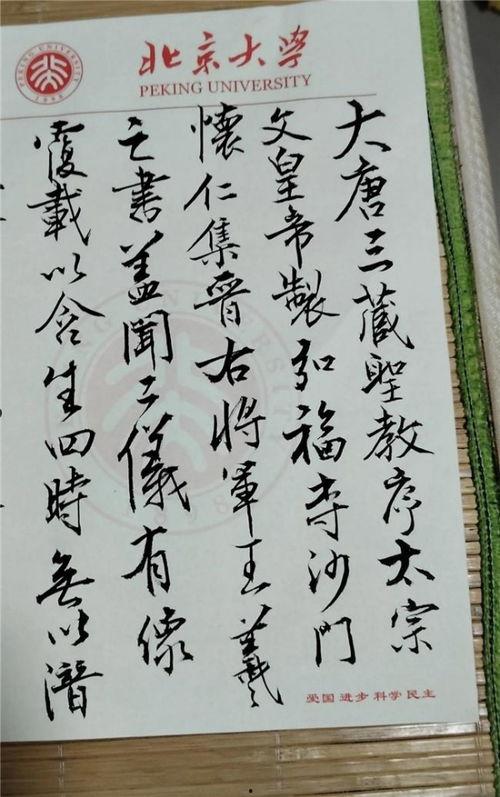 北京大学
PEKING UNIVERSITY
大唐三藏聖教序太宗
文皇帝製弘福寺沙門
懷仁集晉右將軍王羲
之書蓋聞二儀有像
覆載以含生四時無以潛
爱国 进步 科学 民主
PEKING UNIVERSITY
1898